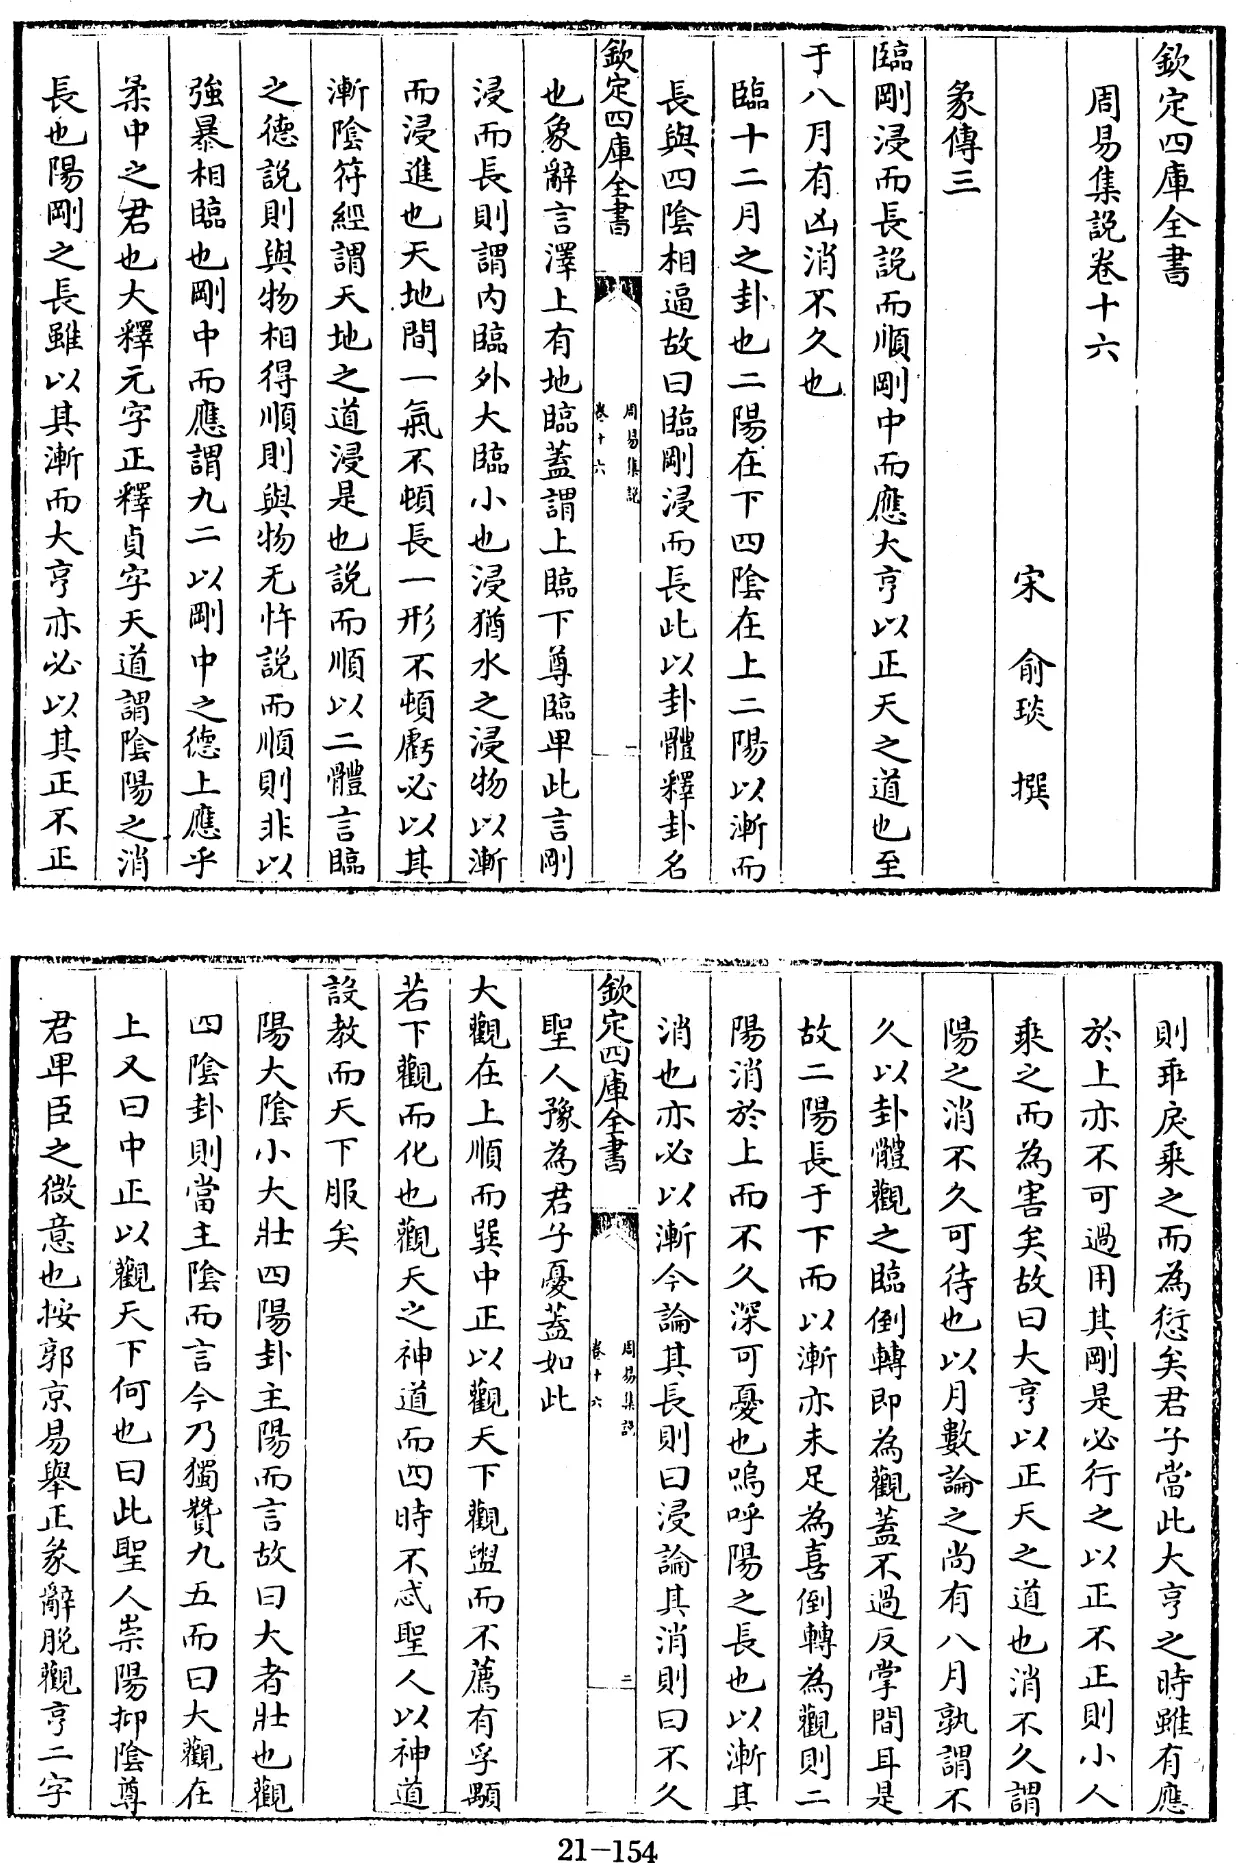 欽定四庫全書
周易集説卷十六
宋 俞琰 撰
彖傳三
臨剛浸而長説而順剛中而應大亨以正天之道也至
于八月有凶消不久也
臨十二月之卦也二陽在下四陰在上二陽以漸而
長與四陰相逼故曰臨剛浸而長此以卦體釋卦名
欽定四庫全書
周易集説
卷十六
一
也象辭言澤上有地臨蓋謂上臨下尊臨卑此言剛
浸而長則謂内臨外大臨小也浸猶水之浸物以漸
而浸進也天地間一氣不頓長一形不頓虧必以其
漸陰符經謂天地之道浸是也説而順以二體言臨
之德説則與物相得順則與物无忤説而順則非以
強暴相臨也剛中而應謂九二以剛中之德上應乎
柔中之君也大釋元字正釋貞字天道謂陰陽之消
長也陽剛之長雖以其漸而大亨亦必以其正不正
則乖戾乘之而為愆矣君子當此大亨之時雖有應
於上亦不可過用其剛是必行之以正不正則小人
乘之而為害矣故曰大亨以正天之道也消不久謂
陽之消不久可待也以月數論之尚有八月孰謂不
久以卦體觀之臨倒轉即為觀蓋不過反掌間耳是
故二陽長于下而以漸亦未足為喜倒轉為觀則二
陽消於上而不久深可憂也嗚呼陽之長也以漸其
消也亦必以漸今論其長則曰浸論其消則曰不久
欽定四庫全書
周易集説
卷十六
二
聖人豫為君子憂蓋如此
大觀在上順而巽中正以觀天下觀盥而不薦有孚顒
若下觀而化也觀天之神道而四時不忒聖人以神道
設教而天下服矣
陽大陰小大壯四陽卦主陽而言故曰大者壯也觀
四陰卦則當主陰而言今乃獨贊九五而曰大觀在
上又曰中正以觀天下何也曰此聖人崇陽抑陰尊
君卑臣之微意也按郭京易舉正彖辭脫觀亨二字
21-154